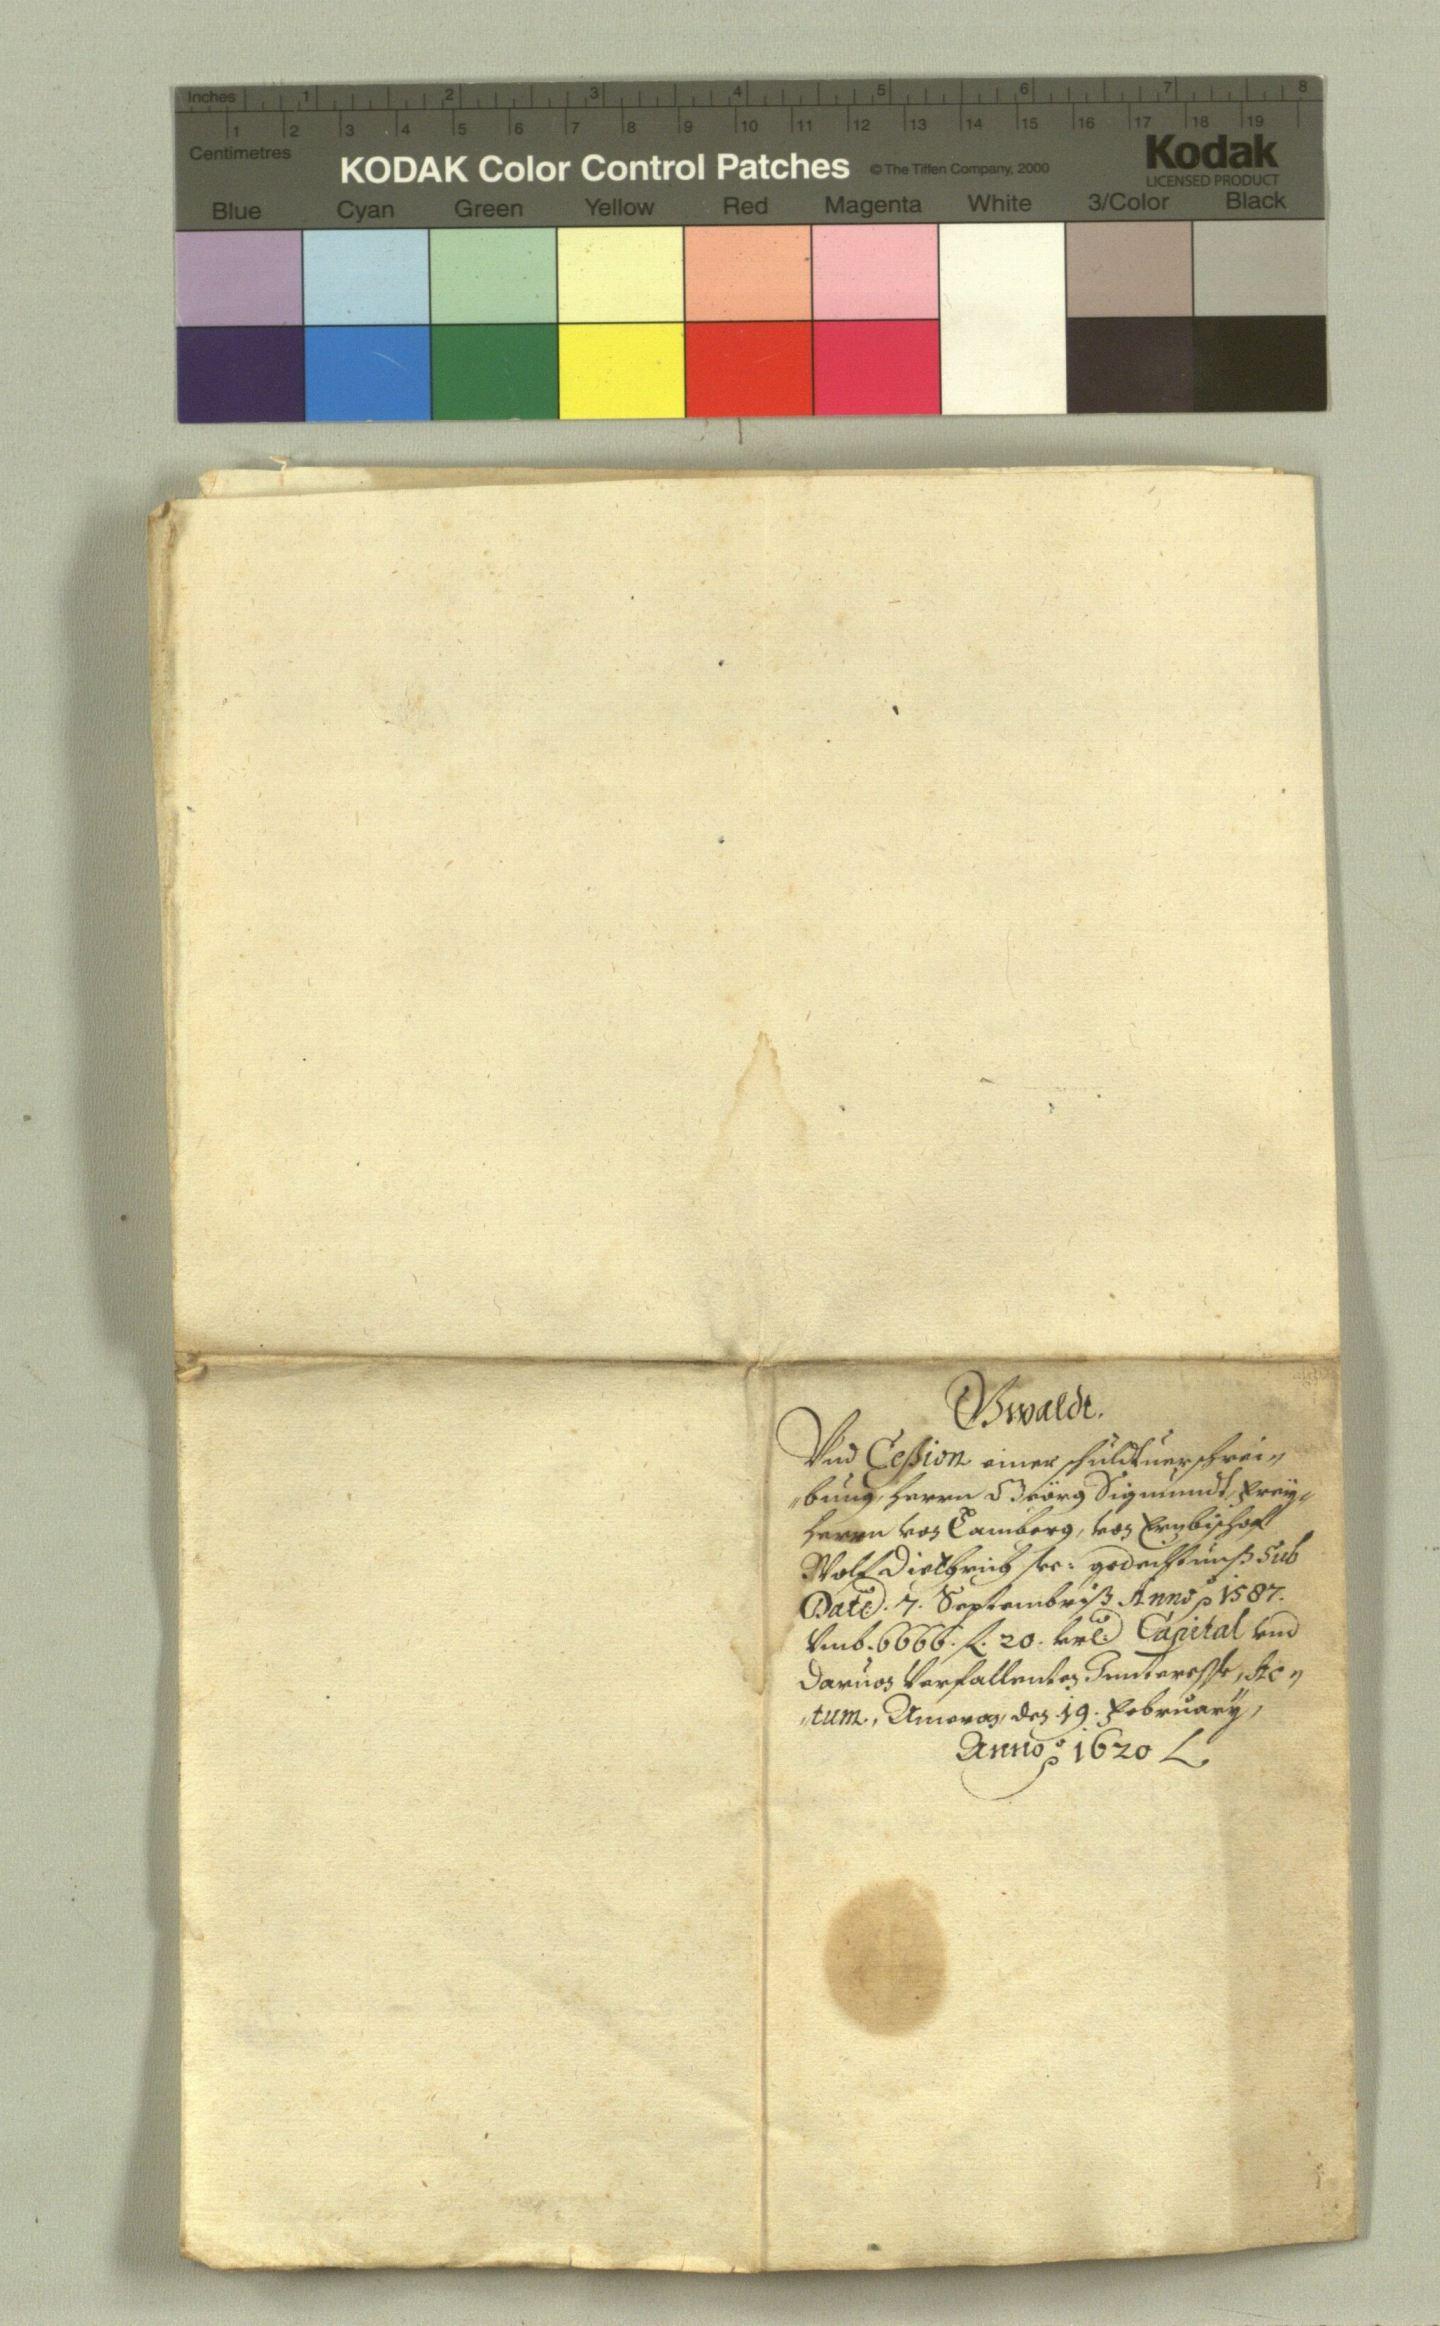 Inches 1 2 3 4 5 6 7 8
1 2 3 4 5 6 7 8 9 10 11 12 13 14 15 16 17 18 19
Centimetres
KODAK Color Control Patches © The Tiffen Company, 2000 Kodak
LICENSED PRODUCT
Blue Cyan Green Yellow Red Magenta White 3/Color Black
Gwaldt.
Vnd Cession einer schuldtuerschrei„
„bung, herrn Geörg Sigmundt, Frey„
herrn von Lamberg, von Erzbischof
Wolf Diethrich see: gedechtnuß sub
Dato. 7. Septembriß Anno 1587.
Vmb. 6666. f. 20. kr Capital vnd
daruon Verfallenten Interesse, Ac„
„tum, den 19. February,
Anno 1620